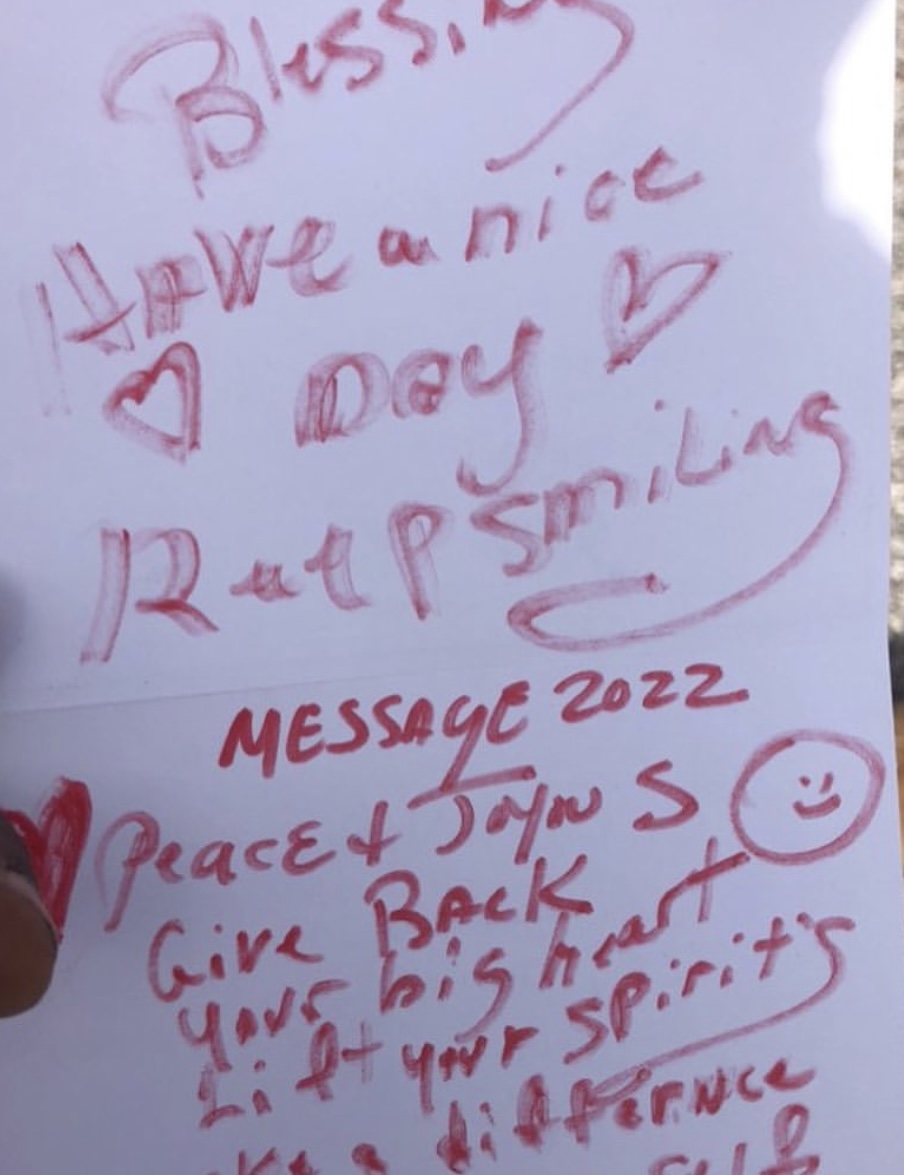 Blessing
Have a nice
Day
Keep smiling
MESSAGE 2022
Peace &
Give BACK
your big heart
Lift your spirit's
a differnce
self